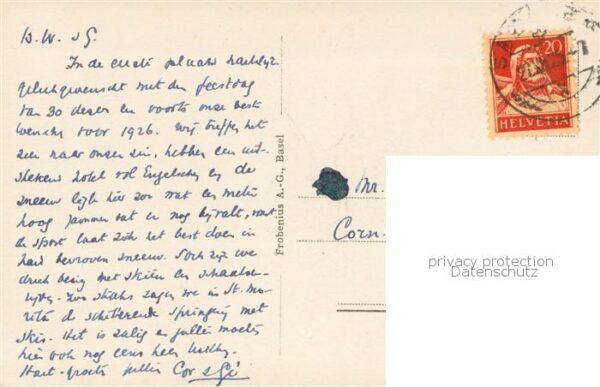 B.W. s G.
In de eerste plaats hartelijk
gelukgewenscht met den feestdag
van 30 dezer en voorts onze beste
wensche voor 1926. Wij treffen het
zeer naar onzen zin, hebben een uit-
stekend hotel vol Engelschen en de
sneeuw ligt hier zoo wat een meter
hoog. Jammer dat er nog bijvalt, want
de sport laat zich het best doen in
hard bevroren sneeuw. Toch zijn we
druk bezig met skiën en schaatsen-
rijden. Zoo straks zagen we in St. Mo-
ritz de schitterende springerij met
skis. Het is zalig en jullie moeten
hier ook nog eens heen
Hart. groete jullie Cor s Gé
Frobenius A.-G., Basel
20
HELVETIA
Mr.
Corn.
privacy protection
Datenschutz